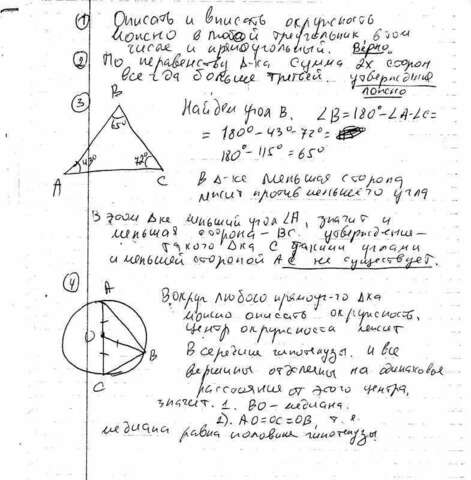 ① Описать и вписать окружность
можно в любой треугольник, в том
числе и прямоугольный. Верно.
② По неравенству Δ-ка сумма 2х сторон
всегда больше третьей. утверждение
ложно
③
B
65°
A
43°
72°
C
Найдем угол B. ∠B=180°-∠A-∠C=
=180°-43°-72°=
180°-115°=65°
В Δ-ке меньшая сторона
лежит против меньшего угла
В этом Δке меньший угол ∠A, значит и
меньшая сторона - BC. утверждение -
такого Δка с такими углами
и меньшей стороной AC не существует.
④
A
O
B
C
Вокруг любого прямоуг-го Δка
можно описать окружность,
центр окружности лежит
в середине гипотенузы. и все
вершины отдалены на одинаковое
расстояние от этого центра,
значит. 1. BO - медиана.
2). AO=OC=OB, т.е.
медиана равна половине гипотенузы